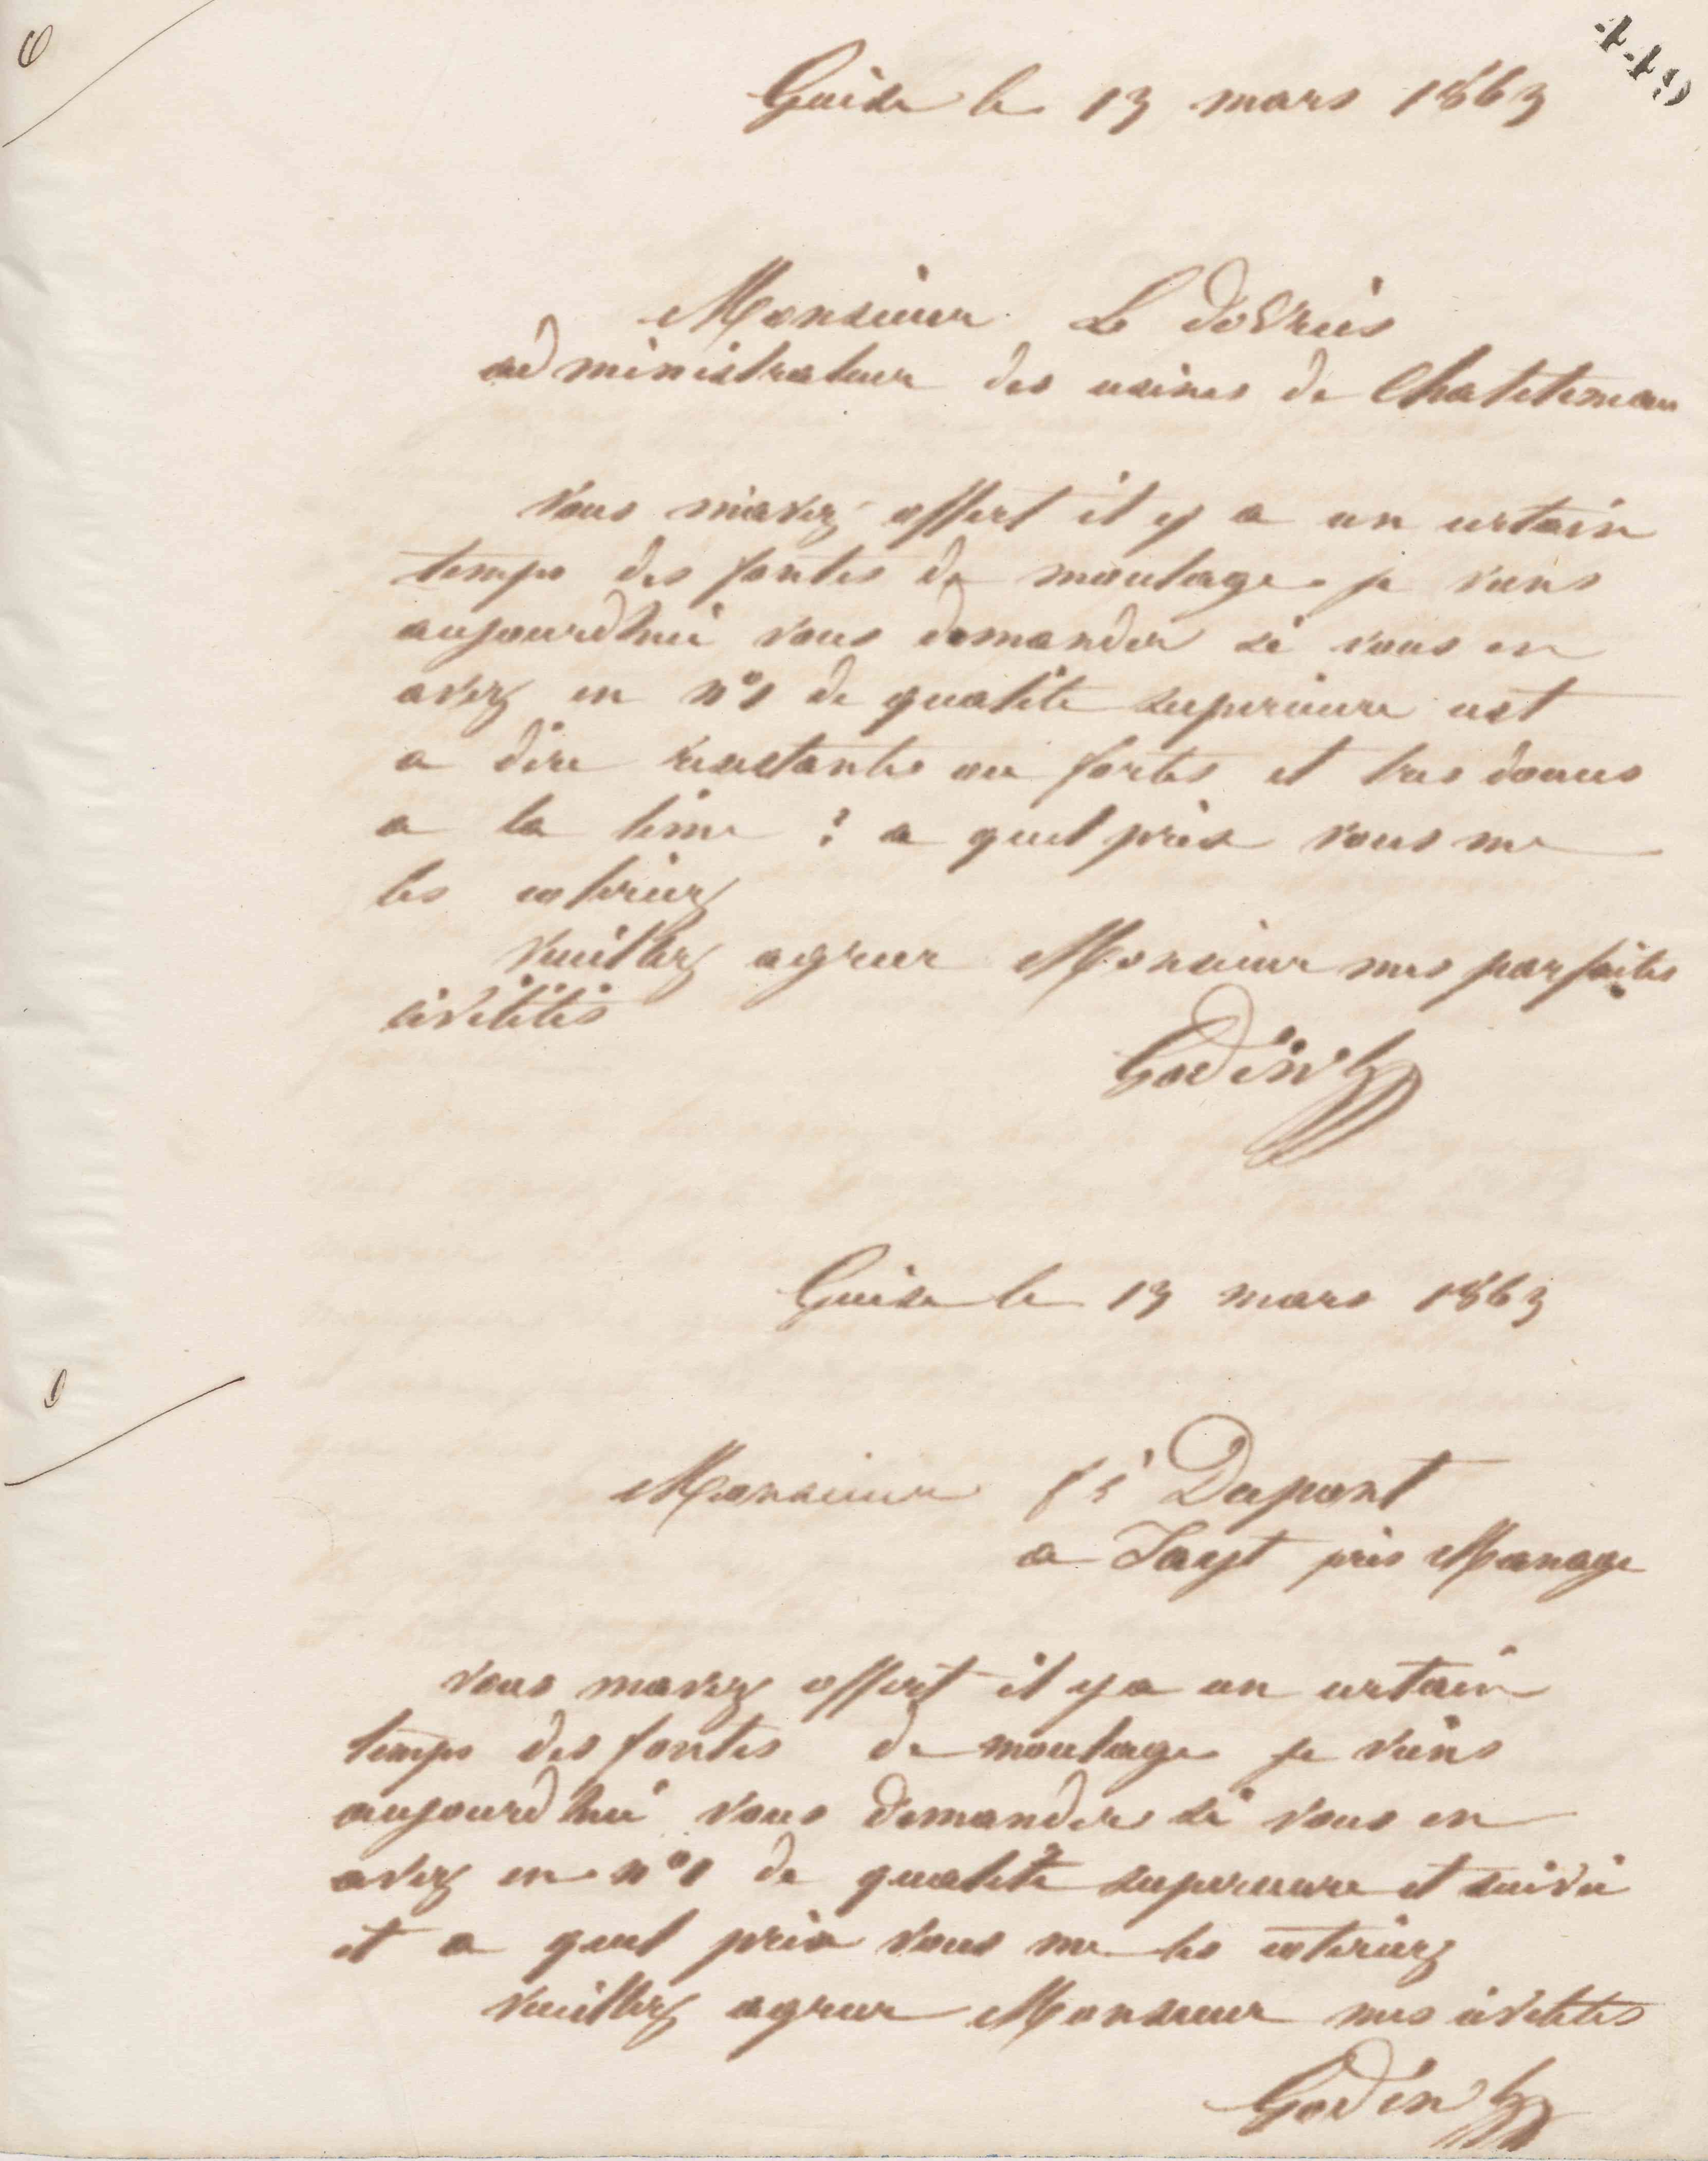 Guise le 13 mars 1863
Monsieur
administrateur des usines de Chateleneau
Vous m'avez offert il y a un certain
temps des fontes de moulage. je viens
aujourdhui vous demander si vous en
avez en n°1 de qualité superieure cest
a dire resistantes ou fortes et tres douces
a la lime ? a quel prix vous me
les coteriez
Veuillez agreer Monsieur mes parfaites
civilités
Godin
Guise le 13 mars 1863
Monsieur Dupont
a Fayt près Manage
Vous mavez offert il y a un certain
temps des fontes de moulage je viens
aujourdhui vous demander si vous en
avez en n°1 de qualité superieure et suivie
et a quel prix vous me les coteriez
Veuillez agreer Monsieur mes civilités
Godin